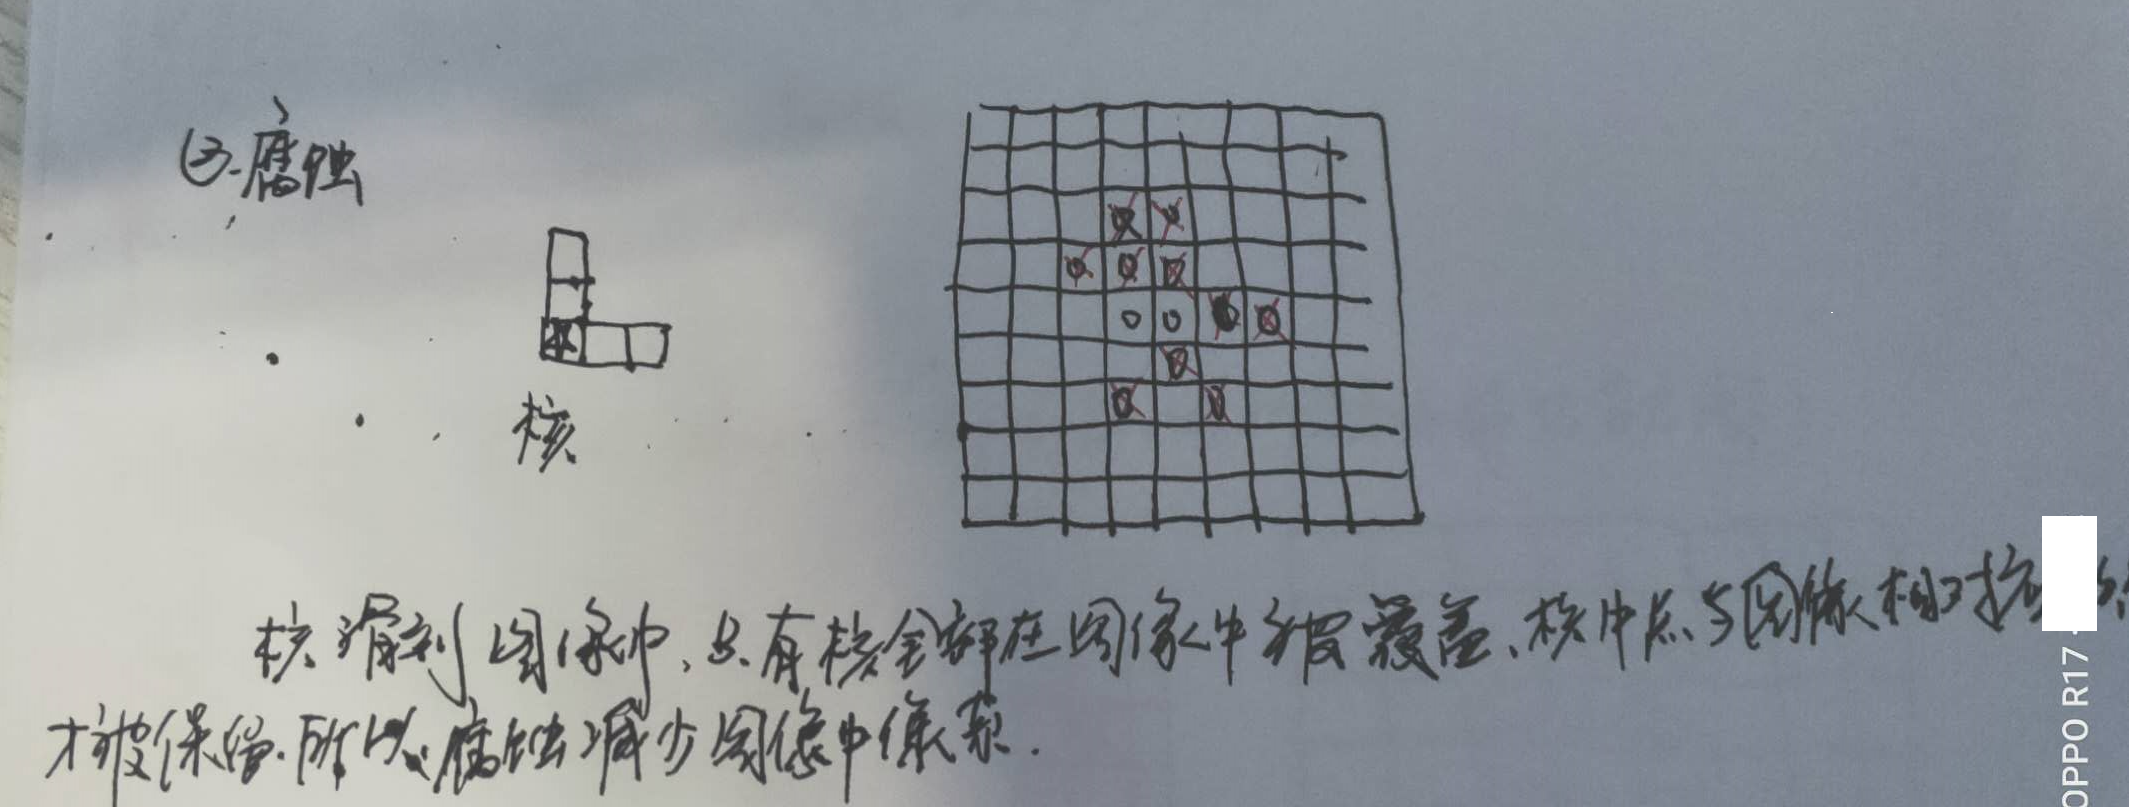 ②.腐蚀
核
核滑到图像中,只有核全部在图像中被覆盖,核中点与图像相对应
才被保留.所以腐蚀减少图像中像素.
OPPO R17